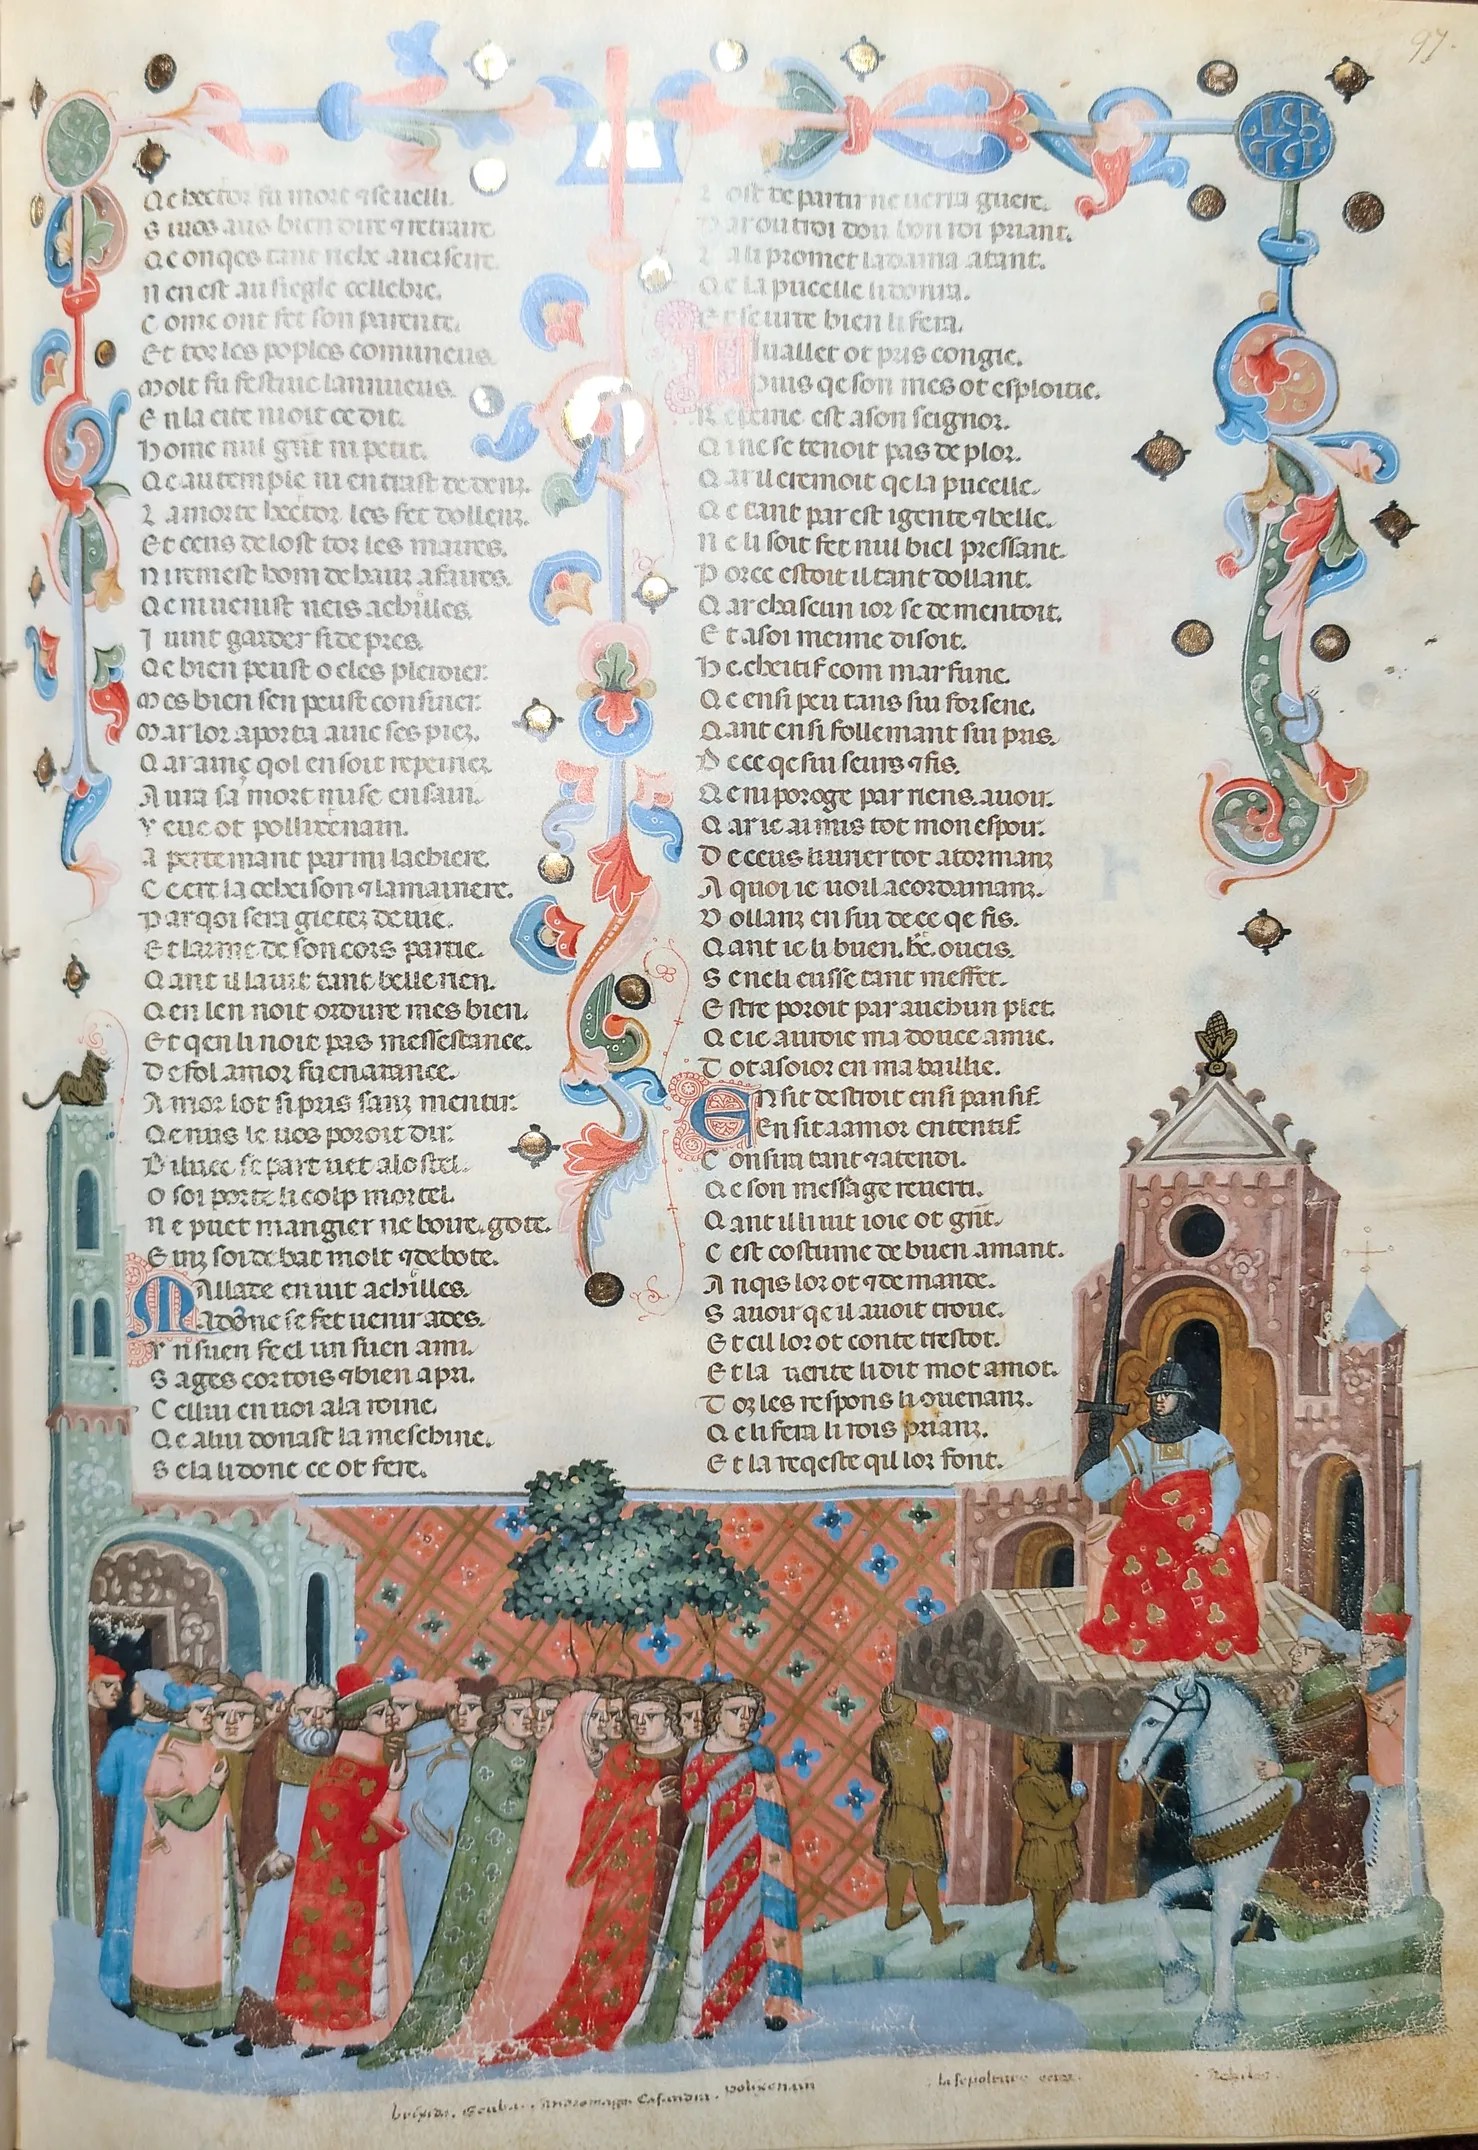 97.
Qe hector fu mort ⁊ seuelli.
S iuos aus bien dire ⁊ retraire.
Qe onqes tant riche auerseire.
N en est au siegle cellebre.
C ome ont fet son parente.
Et toz les poples comuneus.
Molt fu festiue lanniueus.
E n la cite
Home nul grāt ni petit.
Qe au temple ni entrast dedenz.
L a morte hector les fet dollenz.
Et cens de lost toz les maires.
N i remest hom de hauz afaires.
Qe ni uenist neis achilles.
I uint garder si de pres.
Qe bien peust o eles pleidier.
Mes bien sen peust consiurer.
Mar lor aporta auic ses piez.
Q ar ainz qol en soit repeirez
A ura sa mort mise en sain.
Veue ot pollixenam.
A pertemant parmi la chiere.
C e ert la cheison ⁊ la mainere.
Par qoi sera gietez de uie.
Et larme de son cors partie.
Q ant il la uit tant belle rien.
Q en len noit ordure mes bien.
Et qen li noit pas messestance.
De fol amor fu en arance.
A mor lot si pris sanz mentir.
Qe nus le uos poroit dir.
D iluec se part uet a lostel.
O soi porte li colp mortel.
N e puet mangier ne boire gote.
E nuz soi debat molt ⁊ debote.
Mallade en uit achilles.
A dōnc se fet uenir ades.
Vn suen feel un suen ami.
S ages cortois ⁊ bien apri.
C ellui enuoi a la roine.
Qe a lui donast la meschine.
S e la li done ce ot fere.
T ost departir ne uerra guere.
Par ou troi dou bon roi priant.
L a li promet la dama atant.
Qe la pucelle li donra.
Et seurte bien li fera.
L i uallet ot pris congie.
Puis qe son mes ot esploitie.
Repeirie est a son seignor.
Q i ne se tenoit pas de plor.
Q ar il cremoit qe la pucelle.
Q e tant par est igente ⁊ belle.
N e li soit fet nul biel pressant.
P or ce estoit il tant dollant.
Q ar chascun ior se dementoit.
Et a soi meime disoit.
He chetif com mar fune.
Q e ensi peu tans sui forsene.
Q ant ensi follemant sui pris.
D e ce qe sui seurs ⁊ fis.
Q e ni poroge par riens auoir.
Q ar ie ai mis tot mon espoir.
D e ceus liurer toz a tormanz
A quoi ie uoil acordamanz.
D ollanz en sui de ce qe fis.
Q ant ie li buen hc̄. oucis.
S e ne li eusse tant meffet.
Estre poroit par auchun plet.
Q e ie auroie ma douce amie.
Tot a soioz en ma baillie.
Ensi destroit ensi pansif.
En si a amor ententif.
C onsira tant ⁊ atendi.
Q e son message reuerti.
Q ant il li uit ioie ot grāt.
C est costume de buen amant.
A nqis lor ot ⁊ demande.
S auoir qe il auoit troue.
Et cil lor ot conte trestot.
Et la uerite li dit mot a mot.
T oz les respons li ouenanz.
Q e li fera li rois prianz.
Et la reqeste qil lor font.
breseida. Ecuba. Andromaga. Casandra. polixenam
la sepolture
Achiles.